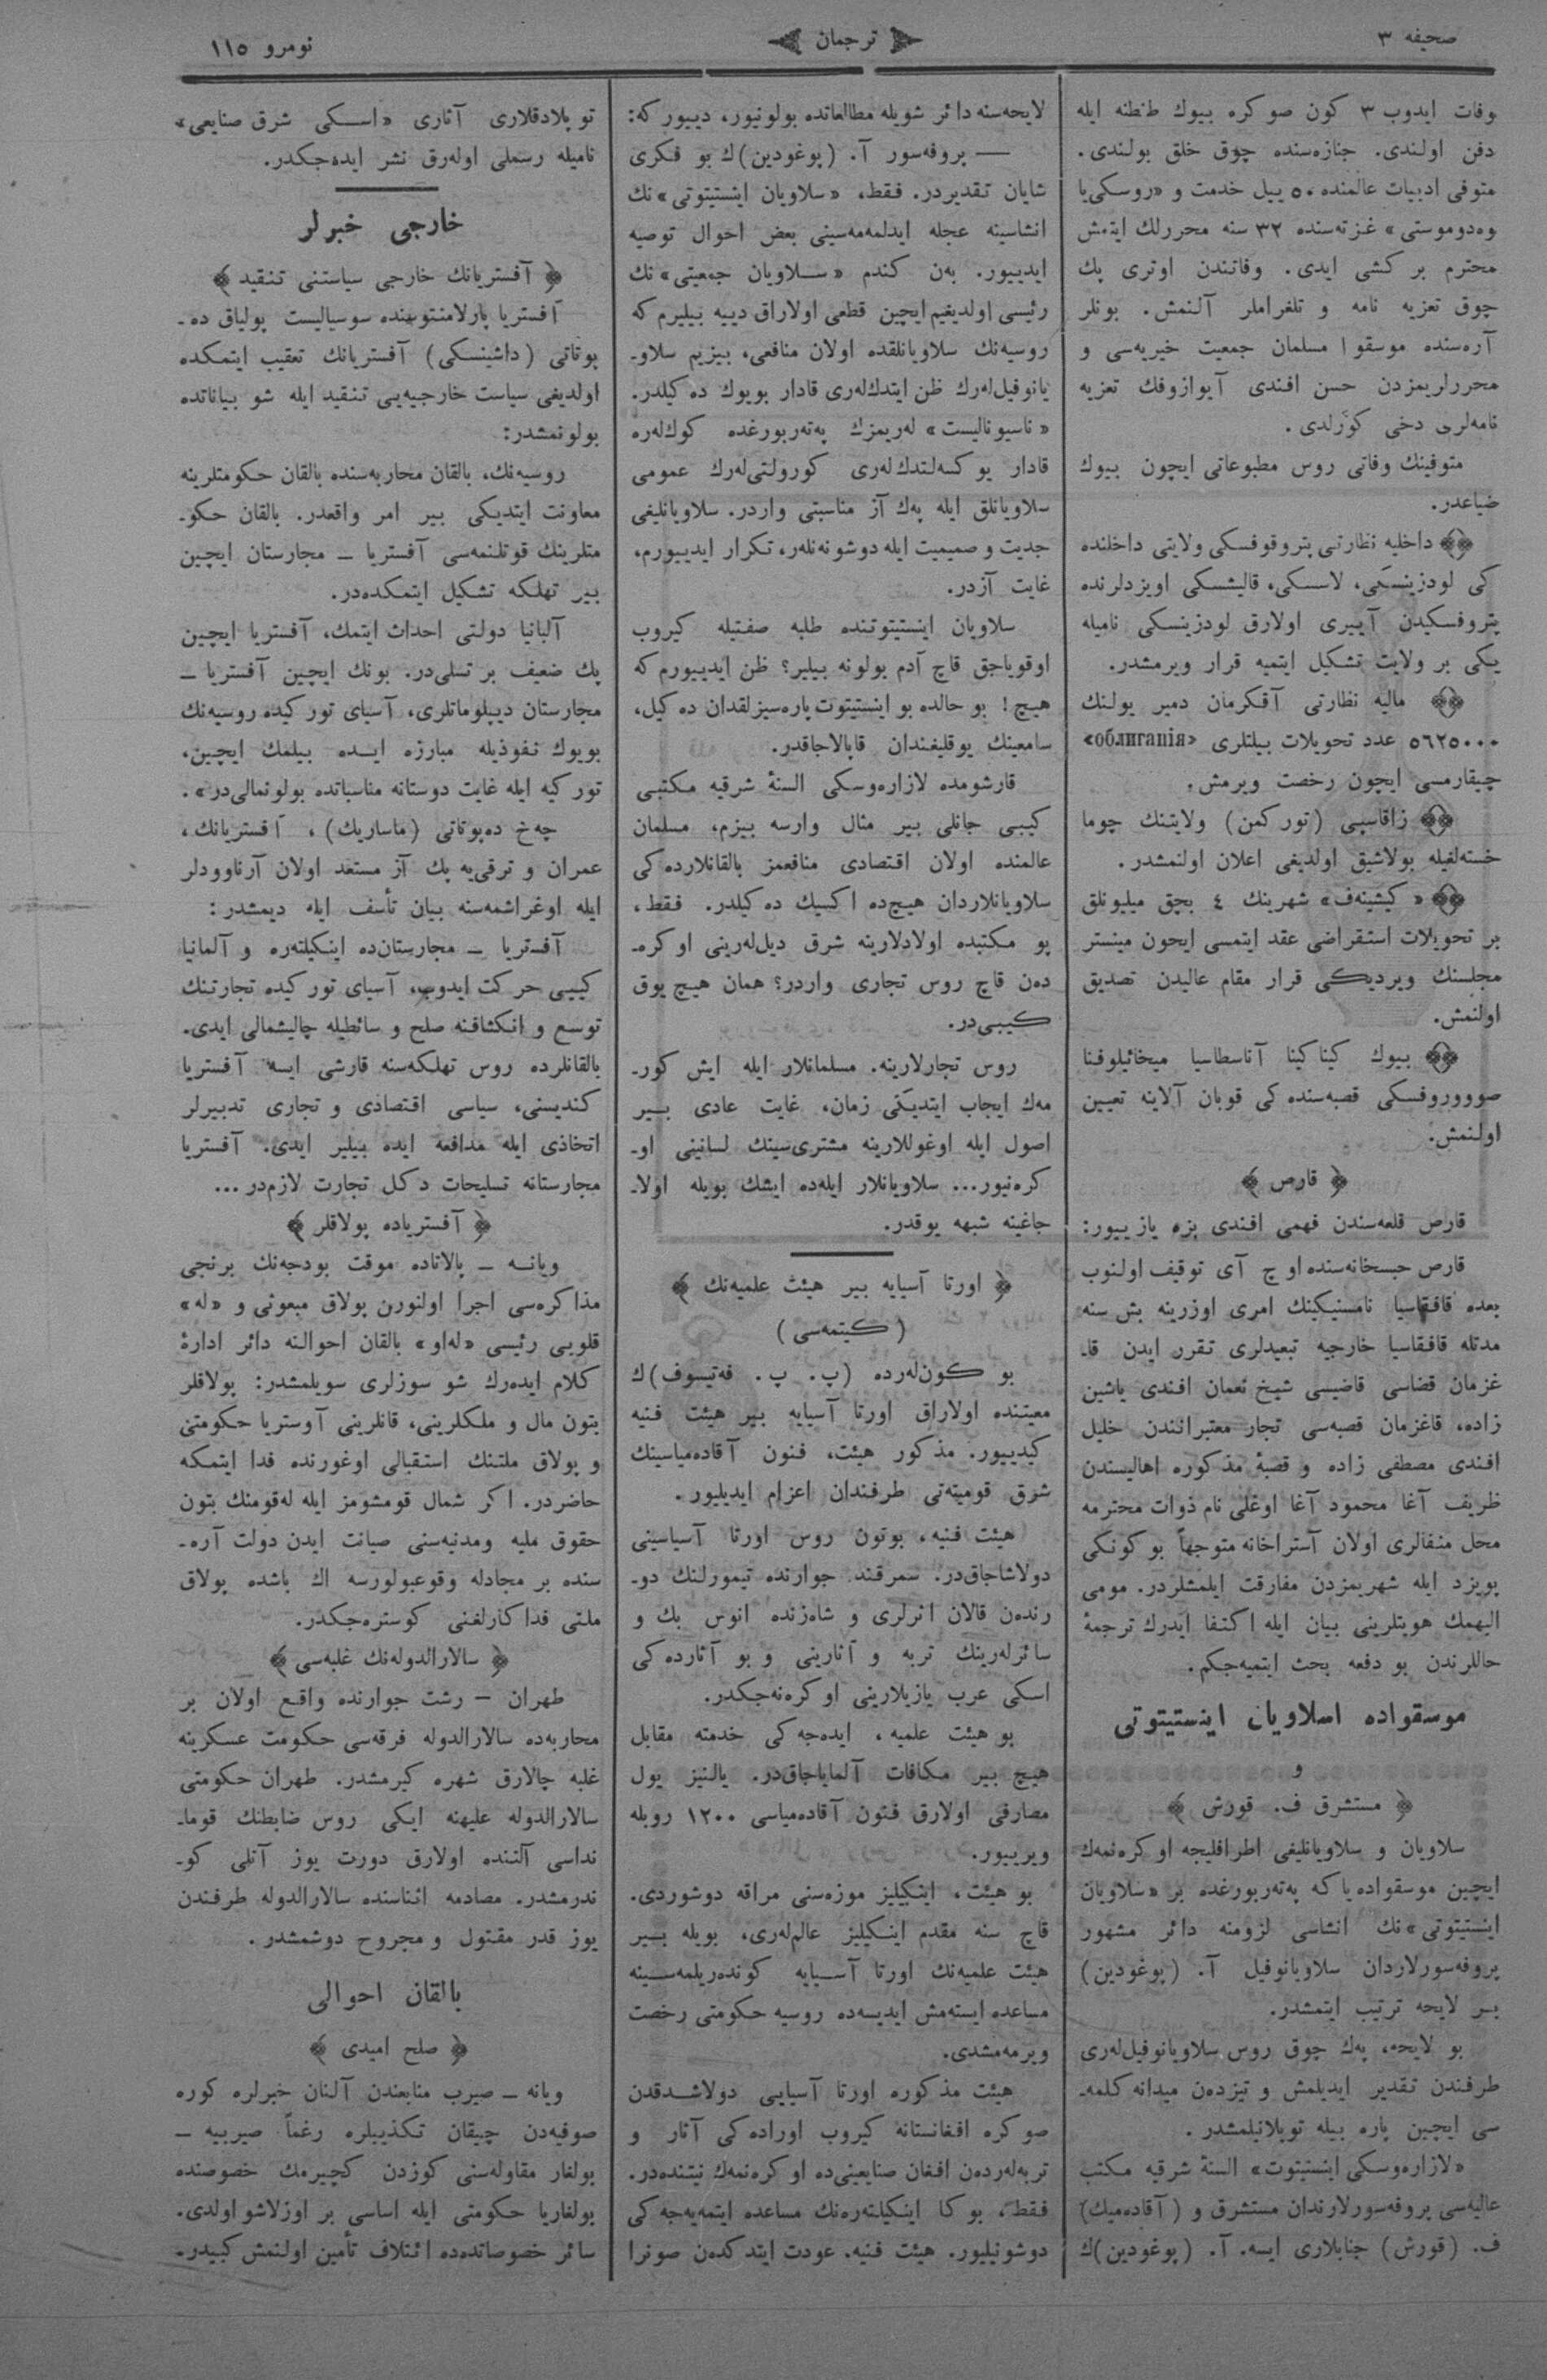 صحیفه ۳
ترجمان
نومرو ۱۱۵
وفات ایدوب ۳ کون صوکره بیوك طنطنه ایله
دفن اولندی. جنازه‌سنده چوق خلق بولندی.
متوفی ادبیات عالمنده ۵۰ ییل خدمت و «روسکی‌یا
وه‌دوموستی» غزته‌سنده ۳۲ سنه محررلك ایتمش
محترم بر کشی ایدی. وفاتندن اوتری پك
چوق تعزیه نامه و تلغراملر آلنمش. بونلر
آره‌سنده موسقوا مسلمان جمعیت خیریه‌سی و
محررلریمزدن حسن افندی آیوازوفك تعزیه
نامه‌لری دخی کوزلدی.
متوفینك وفاتی روس مطبوعاتی ایچون بیوك
ضیاعدر.
داخلیه نظارتی پتروقوفسکی ولایتی داخلنده
کی لودزینسکی، لاسسکی، قالیشسکی اویزدلرنده
پتروفسکیدن آییری اولارق لودزینسکی نامیله
یکی بر ولایت تشکیل ایتمیه قرار ویرمشدر.
مالیه نظارتی آقکرمان دمیر یولنك
۵۶۲۵۰۰۰ عدد تحویلات بیلتلری «облигапія»
چیقارمسی ایچون رخصت ویرمش.
زاقاسپی (تورکمن) ولایتنك چوما
خسته‌لغیله بولاشیق اولدیغی اعلان اولنمشدر.
«کیشینه‌ف» شهرینك ٤ بچق میلیونلق
بر تحویلات استقراضی عقد ایتمسی ایچون مینستر
مجلسنك ویردیکی قرار مقام عالیدن تصدیق
اولنمش.
بیوك کیناکینا آناسطاسیا میخائیلوفنا
صوووروفسکی قصبه‌سنده کی قوبان آلاینه تعیین
اولنمش.
﴿ قارص ﴾
قارص قلعه‌سندن فهمی افندی بزه یازییور:
قارص حبسخانه‌سنده اوچ آی توقیف اولنوب
بعده قافقاسیا نامسنیکینك امری اوزرینه بش سنه
مدتله قافقاسیا خارجیه تبعیدلری تقرر ایدن قا-
غزمان قضاسی قاضیسی شیخ نعمان افندی یاشین
زاده، قاغزمان قصبه‌سی تجار معتبرانندن خلیل
افندی مصطفی زاده و قصبهٔ مذکوره اهالیسندن
ظریف آغا محمود آغا اوغلی نام ذوات محترمه
محل منفالری اولان آستراخانه متوجهاً بو کونکی
پویزد ایله شهریمزدن مفارقت ایلمشلردر. مومی
الیهمك هویتلرینی بیان ایله اکتفا ایدرك ترجمهٔ
حاللرندن بو دفعه بحث ایتمیه‌جکم.
موسقواده اسلاویان اینستیتوتی
و
﴿ مستشرق ف. قورش ﴾
سلاویان و سلاویانلیغی اطرافلیجه اوکره‌نمه‌ك
ایچین موسقواده یا که په‌ته‌ربورغده بر «سلاویان
اینستیتوتی» نك انشاسی لزومنه دائر مشهور
پروفه‌سورلاردان سلاویانوفیل آ. (پوغودین)
بر لایحه ترتیب ایتمشدر.
بو لایحه، په‌ك چوق روس سلاویانوفیل‌له‌ری
طرفندن تقدیر ایدیلمش و تیزده‌ن میدانه کلمه-
سی ایچین پاره بیله توپلانیلمشدر.
«لازاره‌وسکی اینستیتوت» السنهٔ شرقیه مکتب
عالیه‌سی پروفه‌سورلارندان مستشرق و (آقاده‌میك)
ف. (قورش) جنابلاری ایسه. آ. (پوغودین)ك
لایحه‌سنه دائر شویله مطالعاتده بولونیور، دییور که:
— پروفه‌سور آ. (پوغودین)ك بو فکری
شایان تقدیردر. فقط، «سلاویان اینستیتوتی» نك
انشاسینه عجله ایدلمه‌مه‌سینی بعض احوال توصیه
ایدییور. به‌ن کندم «سلاویان جمعیتی» نك
رئیسی اولدیغیم ایچین قطعی اولاراق دییه بیلیرم که
روسیه‌نك سلاویانلقده اولان منافعی، بیزیم سلاو-
یانوفیل‌له‌رك ظن ایتدك‌له‌ری قادار بویوك ده‌کیلدر.
«ناسیونالیست» له‌ریمزك په‌ته‌ربورغده کوك‌له‌ره
قادار یوکسه‌لتدك‌له‌ری کورولتی‌له‌رك عمومی
سلاویانلق ایله په‌ك آز مناسبتی واردر. سلاویانلیغی
جدیت و صمیمیت ایله دوشونه‌نله‌ر، تکرار ایدییورم،
غایت آزدر.
سلاویان اینستیتوتنده طلبه صفتیله کیروب
اوقویاجق قاچ آدم بولونه بیلیر؟ ظن ایدییورم که
هیچ! بو حالده بو اینستیتوت پاره‌سیزلقدان ده‌کیل،
سامعینك یوقلیغندان قاپالاجاقدر.
قارشومده لازاره‌وسکی السنهٔ شرقیه مکتبی
کیبی جانلی بیر مثال وارسه بیزم، مسلمان
عالمنده اولان اقتصادی منافعمز بالقانلارده کی
سلاویانلاردان هیچ‌ده اکسیك ده‌کیلدر. فقط،
بو مکتبده اولادلارینه شرق دیل‌له‌رینی اوکره-
ده‌ن قاچ روس تجاری واردر؟ همان هیچ یوق
کیبی‌در.
روس تجارلارینه. مسلمانلار ایله ایش کور-
مه‌ك ایجاب ایتدیکی زمان، غایت عادی بیر
اصول ایله اوغوللارینه مشتری‌سینك لسانینی او-
کره‌تیور... سلاویانلار ایله‌ده ایشك بویله اولا-
جاغینه شبهه یوقدر.
﴿ اورتا آسیایه بیر هیئت علمیه‌نك ﴾
(کیتمه‌سی)
بو کون‌له‌رده (پ. پ. فه‌تیسوف)ك
معیتنده اولاراق اورتا آسیایه بیر هیئت فنیه
کیدییور. مذکور هیئت، فنون آقاده‌میاسینك
شرق قومیته‌تی طرفندان اعزام ایدیلیور.
هیئت فنیه، بوتون روس اورتا آسیاسینی
دولاشاجاق‌در. سمرقند جوارنده تیمورلنك دو-
رنده‌ن قالان اثرلری و شاه‌زنده انوس بك و
سائرله‌رینك تربه و آثارینی و بو آثارده کی
اسکی عرب یازیلارینی اوکره‌نه‌جکدر.
بو هیئت علمیه، ایده‌جه کی خدمته مقابل
هیچ بیر مکافات آلمایاجاق‌در. یالنیز یول
مصارفی اولارق فنون آقاده‌میاسی ۱۲۰۰ روبله
ویرییور.
بو هیئت، اینکیلیز موزه‌سنی مراقه دوشوردی.
قاچ سنه مقدم اینکیلیز عالم‌له‌ری، بویله بیر
هیئت علمیه‌نك اورتا آسیایه کونده‌ریلمه‌سینه
مساعده ایسته‌مش ایدیسه‌ده روسیه حکومتی رخصت
ویرمه‌مشدی.
هیئت مذکوره اورتا آسیایی دولاشدقدن
صوکره افغانستانه کیروب اوراده کی آثار و
تربه‌له‌رده‌ن افغان صنایعینی‌ده اوکره‌نمه‌ك نیتنده‌در.
فقط، بوکا اینکیلته‌ره‌نك مساعده ایتمه‌یه‌جه کی
دوشونیلیور. هیئت فنیه. عودت ایتدکده‌ن صونرا
توپلادقلاری آثاری «اسکی شرق صنایعی»
نامیله رسملی اوله‌رق نشر ایده‌جکدر.
خارجی خبرلر
﴿ آفستریانك خارجی سیاستنی تنقید ﴾
آفستریا پارلامنتوسنده سوسیالیست پولیاق ده-
پوتاتی (داشینسکی) آفستریانك تعقیب ایتمکده
اولدیغی سیاست خارجیه‌یی تنقید ایله شو بیاناتده
بولونمشدر:
روسیه‌نك، بالقان محاربه‌سنده بالقان حکومتلرینه
معاونت ایتدیکی بیر امر واقعدر. بالقان حکو-
متلرینك قوتلنمه‌سی آفستریا — مجارستان ایچین
بیر تهلکه تشکیل ایتمکده‌در.
آلبانیا دولتی احداث ایتمك، آفستریا ایچین
پك ضعیف بر تسلی‌در. بونك ایچین آفستریا —
مجارستان دیپلوماتلری، آسیای تورکیده روسیه‌نك
بویوك نفوذیله مبارزه ایده بیلمك ایچین،
تورکیه ایله غایت دوستانه مناسباتده بولونمالی‌در».
چه‌خ ده‌پوتاتی (ماساریك)، آفستریانك،
عمران و ترقی‌یه پك آز مستعد اولان آرناوودلر
ایله اوغراشمه‌سنه بیان تأسف ایله دیمشدر:
آفستریا — مجارستان‌ده اینکیلته‌ره و آلمانیا
کیبی حرکت ایدوب، آسیای تورکیده تجارتنك
توسع و انکشافنه صلح و سائطیله چالیشمالی ایدی.
بالقانلرده روس تهلکه‌سنه قارشی ایسه آفستریا
کندیسنی، سیاسی اقتصادی و تجاری تدبیرلر
اتخاذی ایله مدافعه ایده بیلیر ایدی. آفستریا
مجارستانه تسلیحات دکل تجارت لازم‌در...
﴿ آفستریاده پولاقلر ﴾
ویانه — پالاتاده موقت بودجه‌نك برنجی
مذاکره‌سی اجرا اولنورن پولاق مبعوثی و «له»
قلوبی رئیسی «له‌او» بالقان احوالنه دائر ادارهٔ
کلام ایده‌رك شو سوزلری سویلمشدر: پولاقلر
بتون مال و ملکلرینی، قانلرینی آوستریا حکومتی
و پولاق ملتنك استقبالی اوغورنده فدا ایتمکه
حاضردر. اکر شمال قومشومز ایله له‌قومنك بتون
حقوق ملیه ومدنیه‌سنی صیانت ایدن دولت آره-
سنده بر مجادله وقوعبولورسه اك باشده پولاق
ملتی فداکارلغنی کوستره‌جکدر.
﴿ سالارالدوله‌نك غلبه‌سی ﴾
طهران — رشت جوارنده واقع اولان بر
محاربه‌ده سالارالدوله فرقه‌سی حکومت عسکرینه
غلبه چالارق شهره کیرمشدر. طهران حکومتی
سالارالدوله علیهنه ایکی روس ضابطنك قوما-
نداسی آلتنده اولارق دورت یوز آتلی کو-
ندرمشدر. مصادمه اثناسنده سالارالدوله طرفندن
یوز قدر مقتول و مجروح دوشمشدر.
بالقان احوالی
﴿ صلح امیدی ﴾
ویانه — صیرب منابعندن آلنان خبرلره کوره
صوفیه‌دن چیقان تکذیبلره رغماً صیربیه —
بولغار مقاوله‌سنی کوزدن کچیرمك خصوصنده
بولغاریا حکومتی ایله اساسی بر اوزلاشو اولدی.
سائر خصوصاتده‌ده ائتلاف تأمین اولنمش کبیدر.